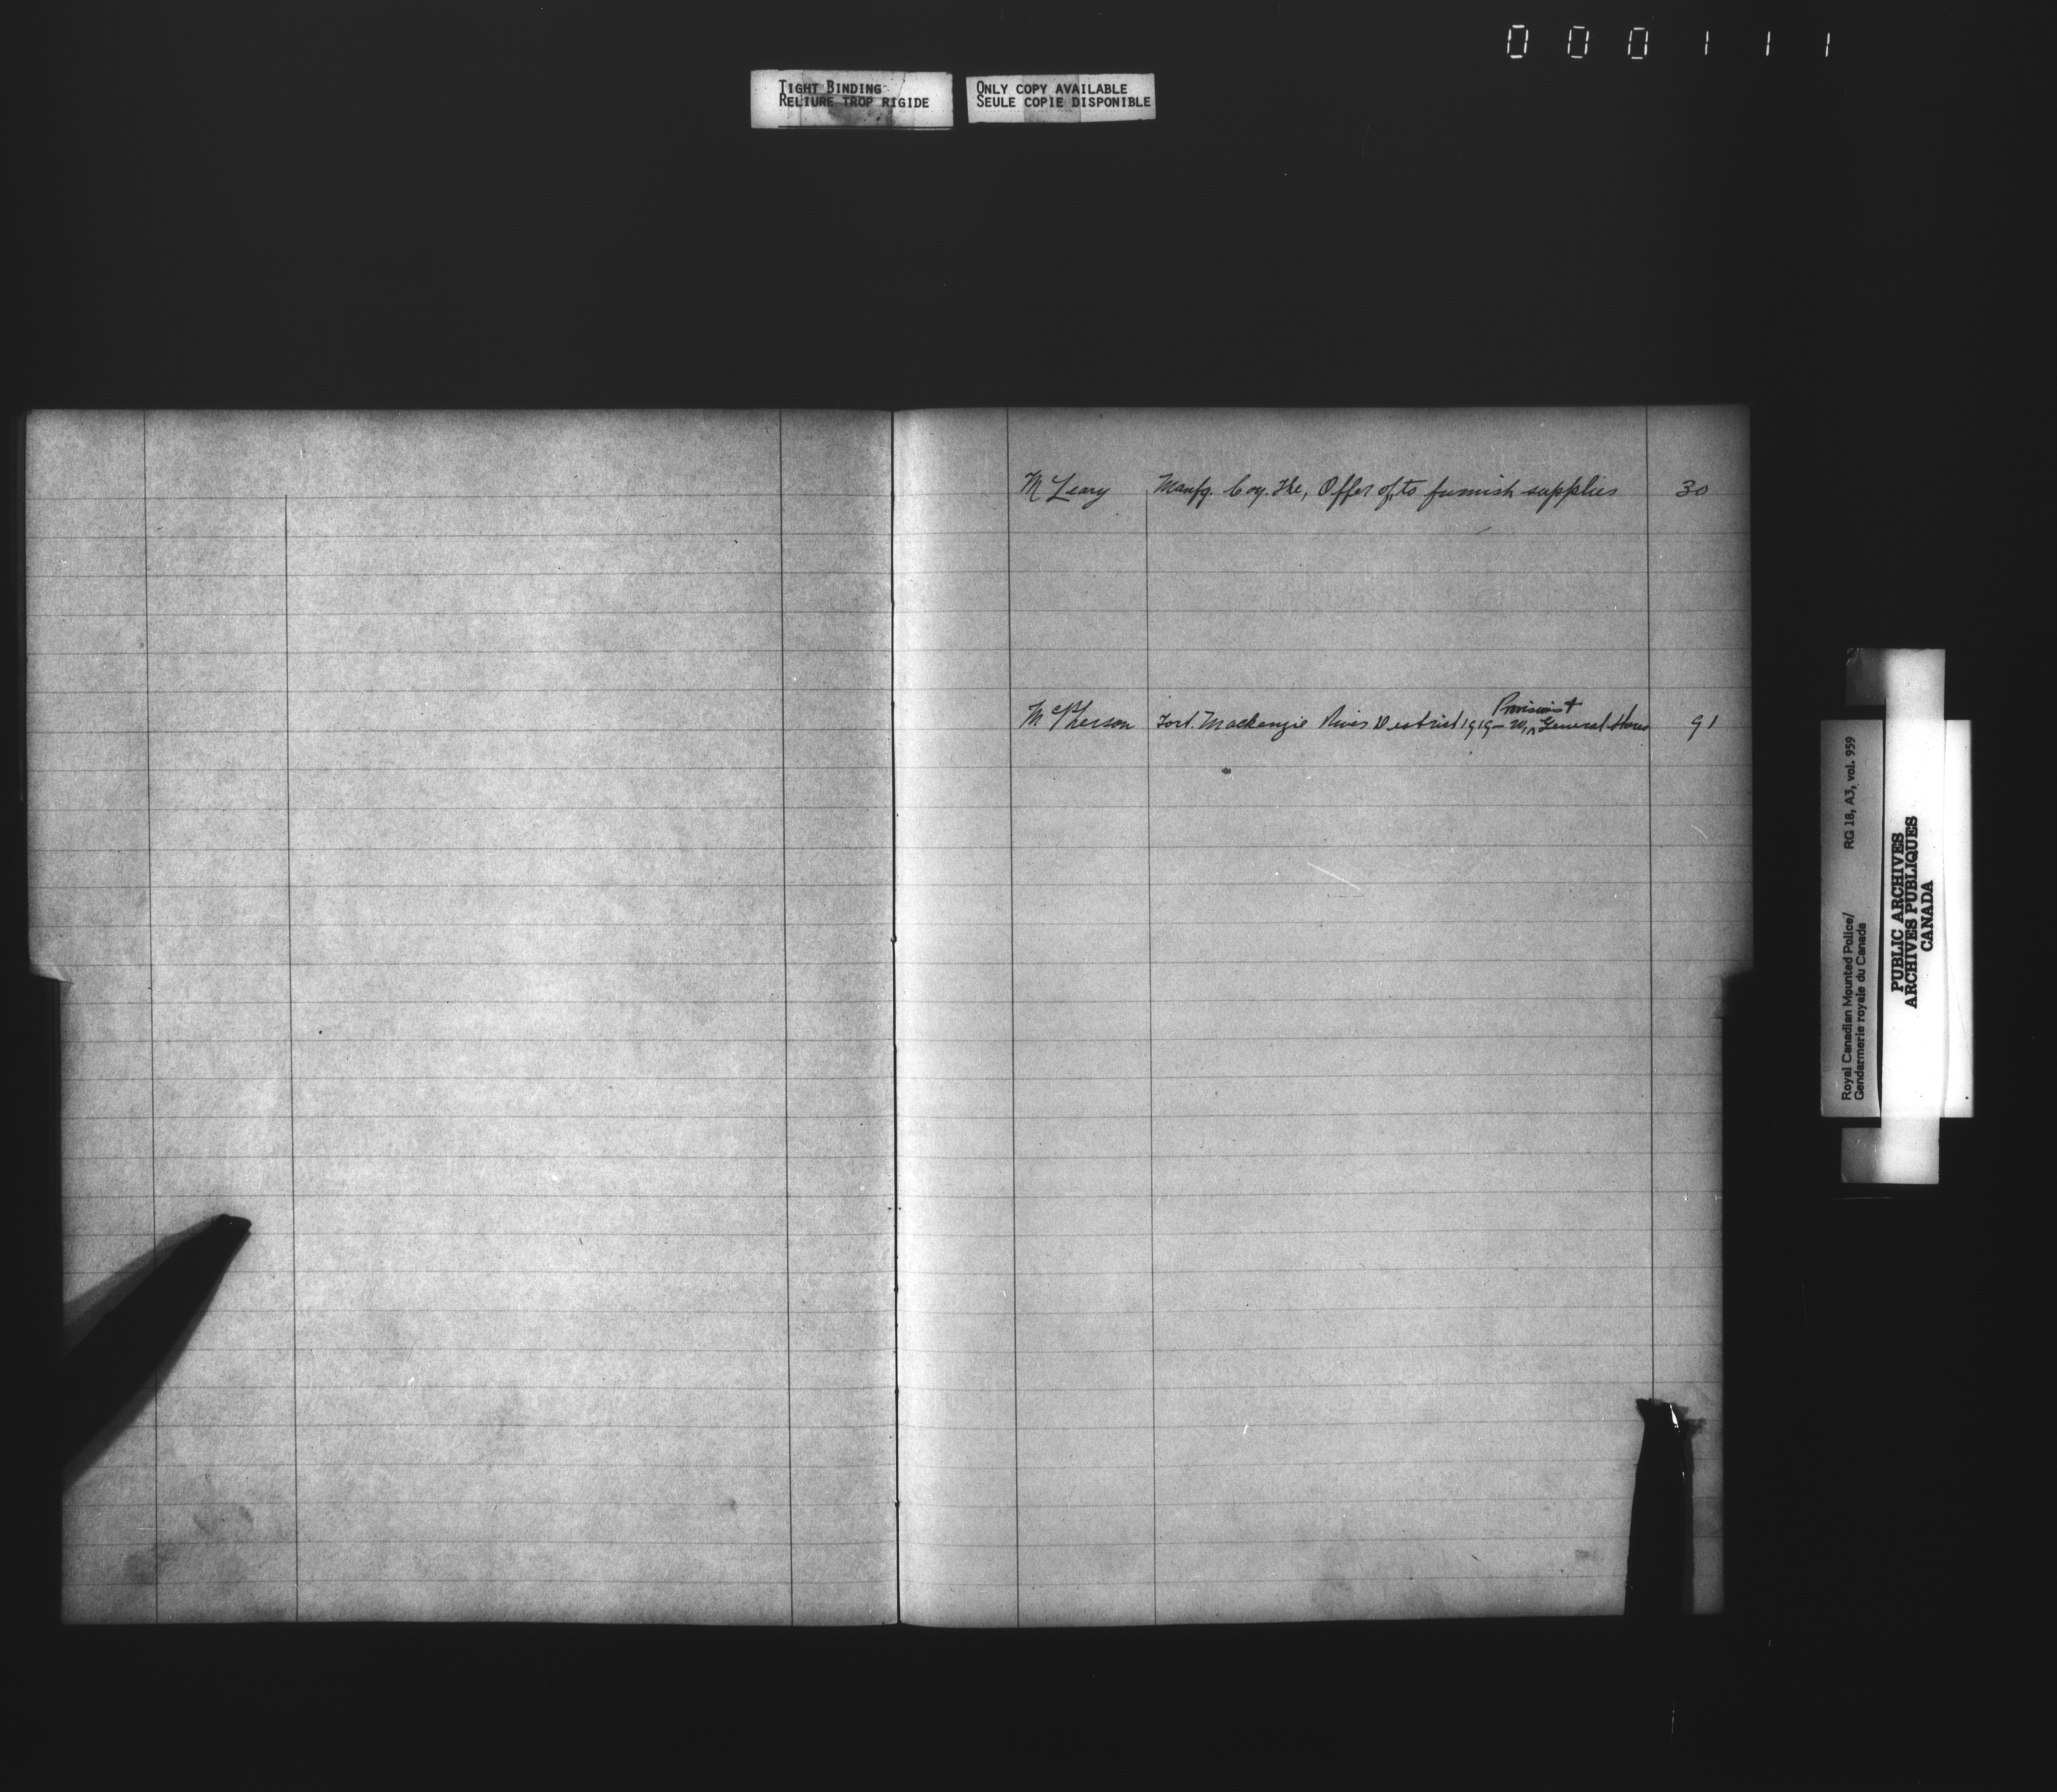 000111
TIGHT BINDING
RELIURE TROP RIGIDE
ONLY COPY AVAILABLE
SEULE COPIE DISPONIBLE
McLeary Manfg. Coy. The, Offer of, to furnish supplies 30
Provisions +
McPherson Fort. Mackenzie River District 1919-20, General Stores 91
Royal Canadian Mounted Police/ RG 18, A3, vol. 959
Gendarmerie royale du Canada
PUBLIC ARCHIVES
ARCHIVES PUBLIQUES
CANADA